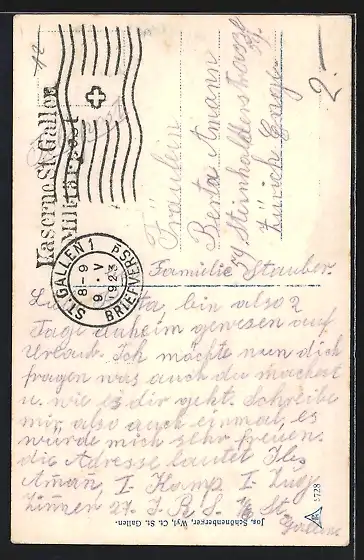 Kaserne St. Gallen
Militärpost
ST. GALLEN 1
BRIEFVERS
8-9
9. V
1923
2.-
Fräulein
Berta Amann
54 Steinhaldenstrasse
Zürich Enge
Familie Stauber.
bin also 2
Tage daheim gewesen auf
Urlaub. Ich möchte nun dich
fragen was auch du machest
u. wie es dir geht. Schreibe
mir also auch einmal, es
würde mich sehr freuen.
die Adresse lautet
I. Komp I. Zug
Zimmer 27. J. R. S. St.
Gallen
Jos. Schönenberger, Wyl, Ct. St. Gallen.
5728